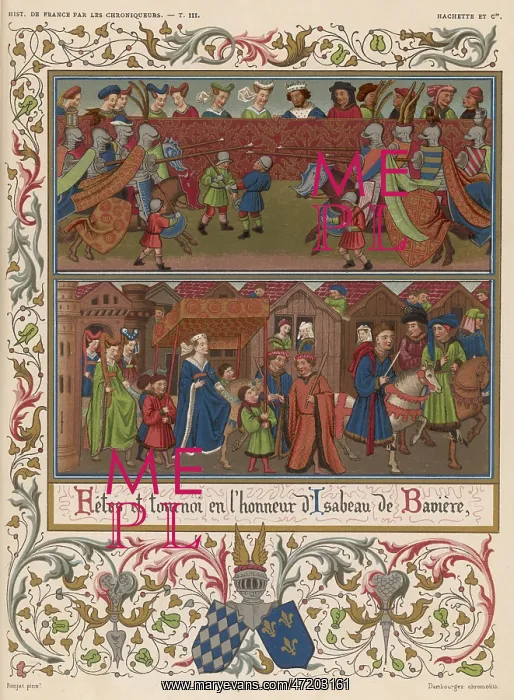 HIST. DE FRANCE PAR LES CHRONIQUEURS. — T. III.
HACHETTE ET Cⁱᵉ.
ME
PL
ME
PL
Fêtes et tournoi en l'honneur d'Isabeau de Bavière,
pinxᵗ
Dambourgez chromolith.
www.maryevans.com/47203161